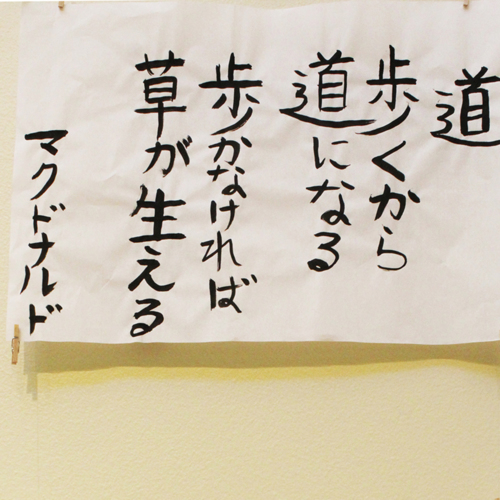 道
歩くから
道になる
歩かなければ
草が生える
マクドナルド